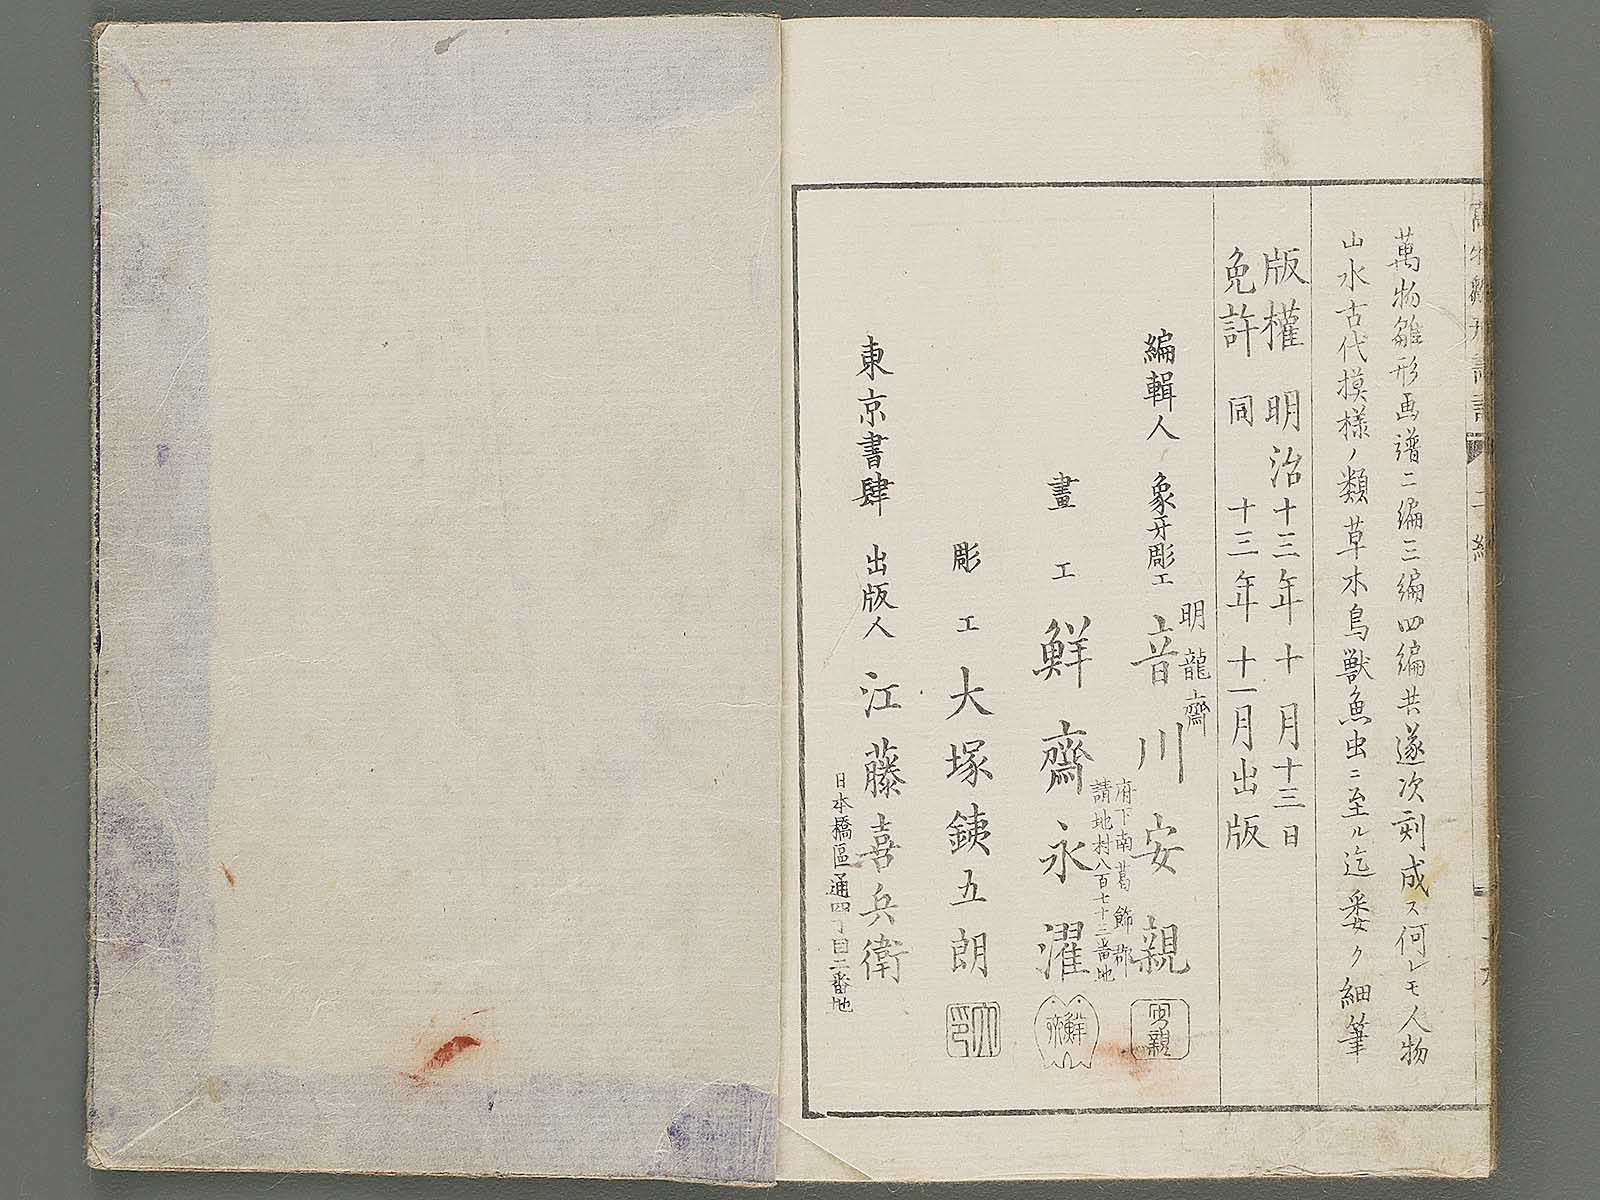 萬物雛形画譜二編三編四編共遂次刻成ス何レモ人物
山水古代摸様ノ類草木鳥獣魚虫ニ至ル迄委ク細筆
版權 明治十三年十月十三日
免許 同 十三年十一月出版
編輯人 象牙彫工 明龍齋 音川安親
府下南葛飾郡
請地村八百七十三番地
畫工 鮮齋永濯
鮮齋
彫工 大塚銕五郎
東京書肆 出版人 江藤喜兵衛
日本橋區通四丁目二番地